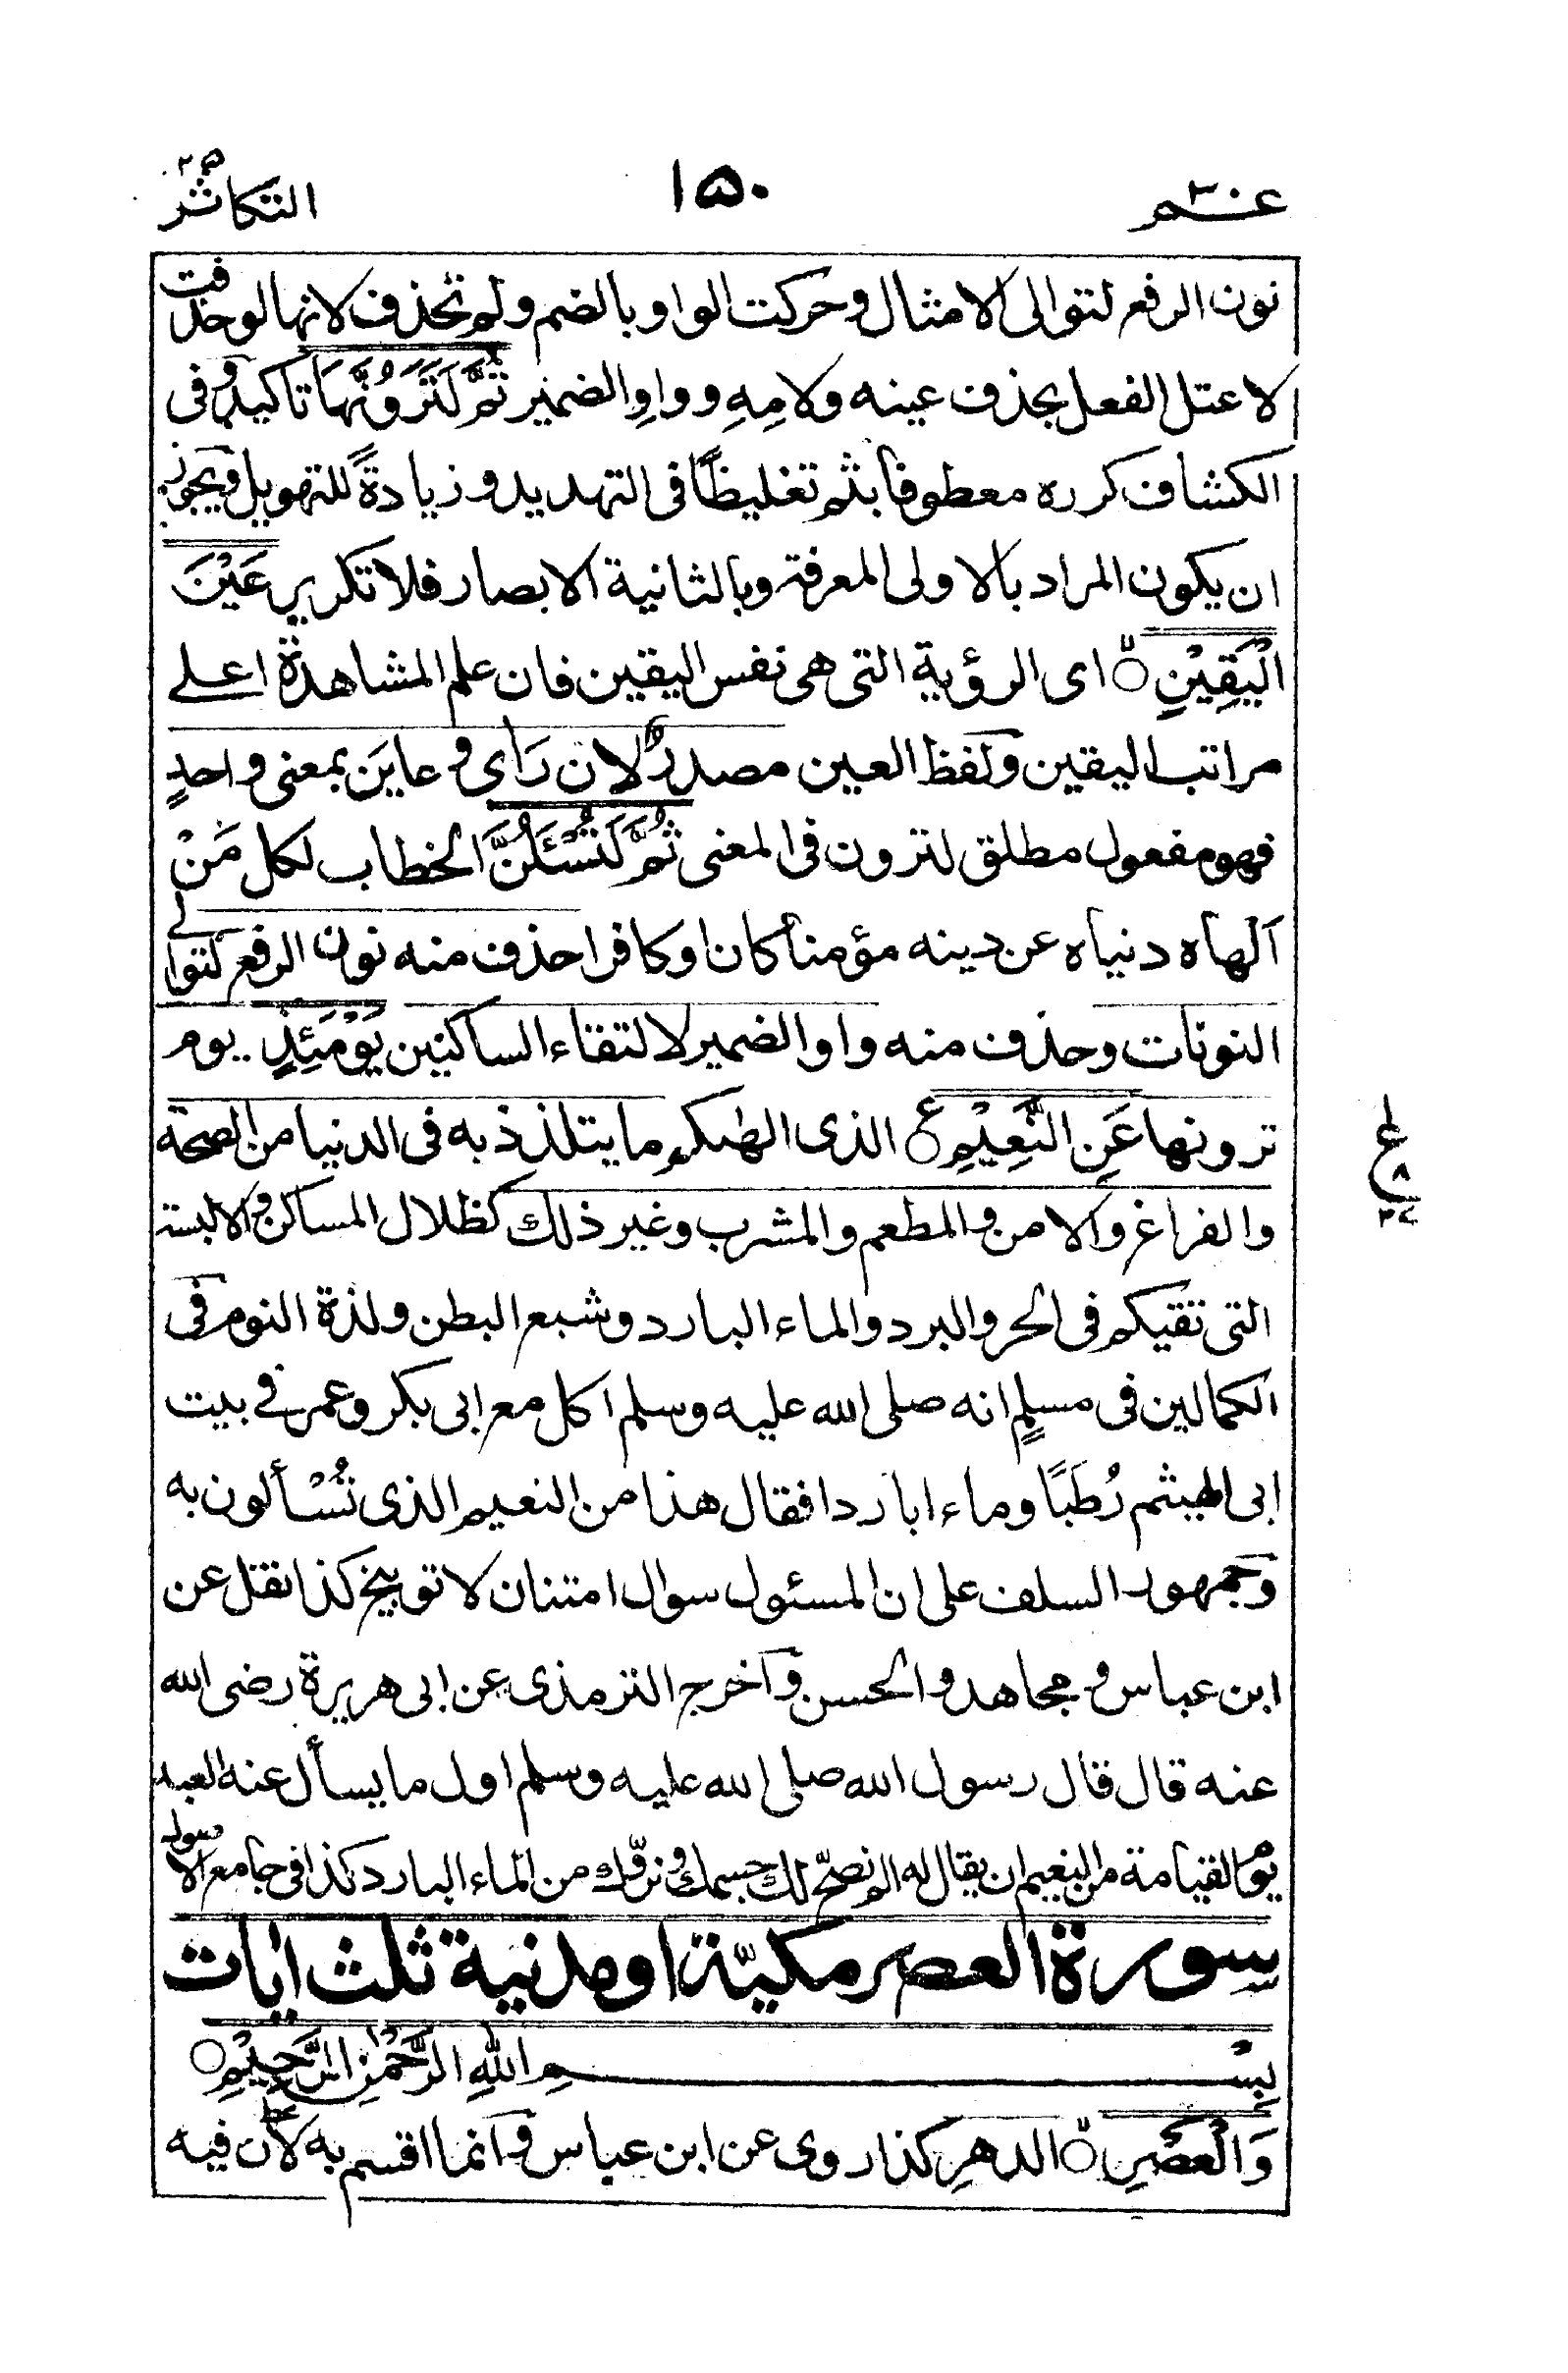 عم ٣٠
١٥٠
التكاثر
نون الرفع لتوالى الامثال وحركت الواو بالضم ولم تحذف لانها لو حذفت
لاعتل الفعل بحذف عينه ولامِهِ وواوِ الضمير ثُمَّ لَتَرَوُنَّهَا تاكيد وفى
الكشاف كرره معطوفا بثم تغليظًا فى التهديد و زيادةً للتهويل ويجوز
ان يكون المراد بالاولى المعرفة وبالثانية الابصار فلا تكرير عَيْنَ
الْيَقِيْنِ ۙ اى الرؤية التى هى نفس اليقين فان علم المشاهدة اعلے
مراتب اليقين ولفظ العين مصدرٌ لان رَاى و عايَن بمعنى واحدٍ
فهو مفعول مطلق لترون فى المعنى ثُمَّ لَتُسْئَلُنَّ الخطاب لكل مَنْ
اَلهاه دنياه عن دينه مؤمنا كان او كافرا حذف منه نون الرفع لتوالے
النونات وحذف منه واو الضمير لالتقاء الساكنين يَوْمَئِذٍ يوم
ترونها عَنِ النَّعِيْمِ ع الذى الهٰكم ما يتلذذ به فى الدنيا من الصحة
والفراغ والامن والمطعم والمشرب وغير ذلك كظلال المساكن والالبسة
التى تقيكم فى الحر والبرد والماء البارد وشبع البطن ولذة النوم فى
الكمالين فى مسلمٍ انه صلى الله عليه وسلم اكل مع ابى بكر وعمر فے بيت
ابى الهيثم رُطَبًا وماء باردا فقال هذا من النعيم الذى تُسْألون به
وجمهور السلف على ان المسئول سوال امتنان لا توبيخ كذا نقل عن
ابن عباس و مجاهد والحسن واخرج الترمذى عن ابى هريرة رضى الله
عنه قال قال رسول الله صلى الله عليه وسلم اول ما يسأل عنه العبد
يوم القيامة من النعيم ان يقال له الم نصحّ لك جسمك ونروّك من الماء البارد كذا فى جامع الاصول
سورة العصر مكيّة او مدنية ثلث اٰيات
بِسْمِ اللهِ الرَّحْمٰنِ الرَّحِيْمِ
وَالْعَصْرِ ۙ الدهرِ كذا روى عن ابن عباس و انما اقسم به لان فيه
ع
٨
٢٧